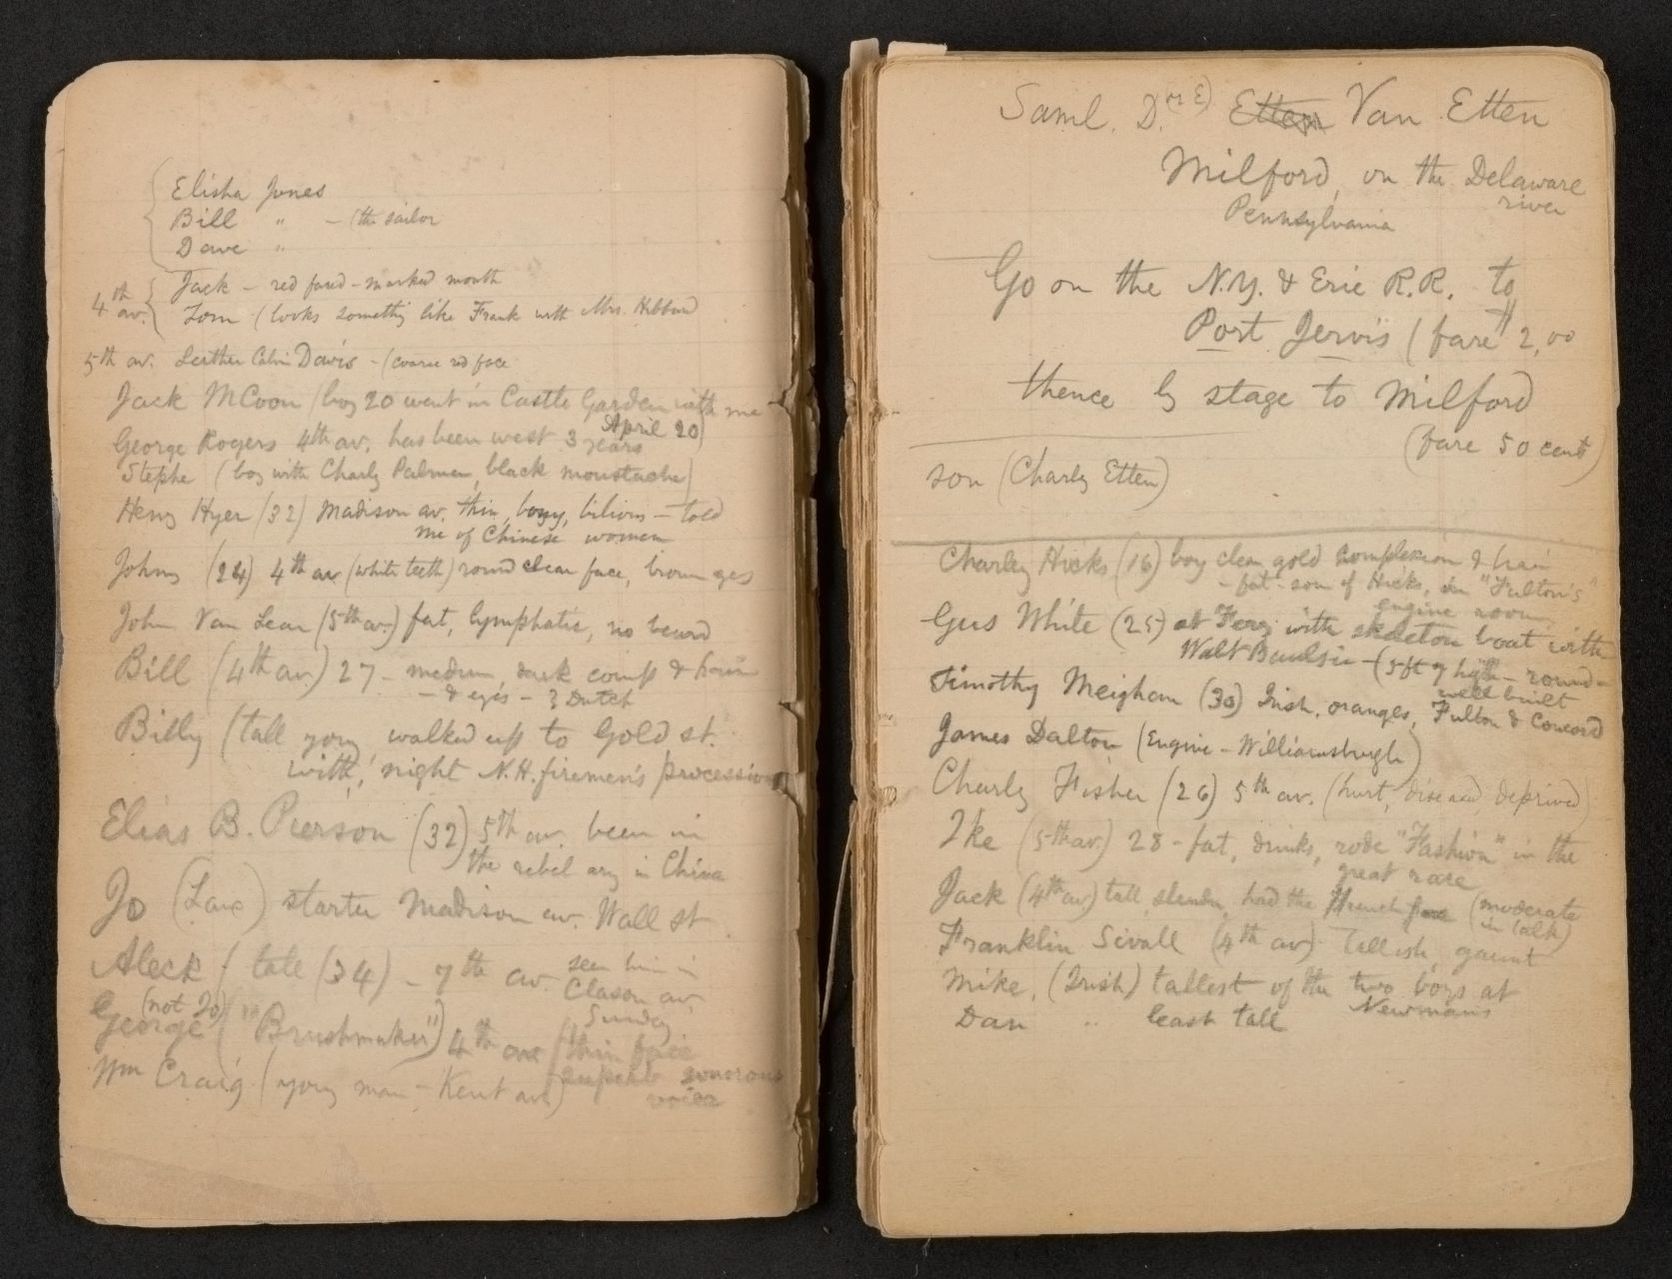 Elisha Jones
Bill " — (the sailor
Dave "
4th av. { Jack – red faced – marked mouth
Tom (looks somethig like Frank with Mrs. Hibbard
5th av. Luther Calvin Davis – (coarse red face
Jack McCoon (boy 20 went in Castle Garden with me
April 20)
George Rogers 4th av. has been west 3 years
Stephe (boy with Charly Palmer, black moustache)
Heny Hyer (32) Madison av. thin, bony, bilious – told
me of Chinese women
Johny (24) 4th av (white teeth) round clear face, brown eyes
John Van Lear (5th av.) fat, lymphatic, no beard
Bill (4th av.) 27 – medium, dark comp & hair
– & eyes – ? Dutch
Billy (tall yong walked up to Gold st.
with, night N.H. firemen's procession
Elias B. Pierson (32) 5th av. been in
the rebel army in China
Jo (Law) starter Madison av. Wall st
Aleck (34) – 7th av. seen him in
Clason av.
Sunday
(not Jo)
George ("Brushmaker") 4th ave (thin face
superb sonorous
voice
Wm Craig (yong man – Kent av.)
Saml. D. (or E) Etten Van Etten
Milford, on the Delaware
river
Pennsylvania
Go on the N.Y. & Erie R.R. to
Port Jervis (fare $2,00
thence by stage to Milford
(fare 50 cents)
son (Charly Etten)
Charley Hicks (16) boy clear gold complexion & hair
– fat – son of Hicks, in "Fulton's"
engine room
Gus White (25) at Ferry with skeleton boat with
Walt Baulsir – (5ft 9 high – round –
well built
Timothy Meighan (30) Irish, oranges, Fulton & Concord
James Dalton (Engine – Williamsburgh)
Charly Fisher (26) 5th av. (hurt, diseased, deprived)
Ike (5th av.) 28 – fat, drinks, rode "Fashion" in the
great race
Jack (4th av) tall slender, had the French (moderate
in talk)
Franklin Sivall (4th av) Tallish, gaunt
Mike, (Irish) tallest of the two boys at
Newmans
Dan " least tall